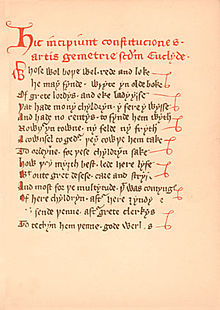 Hic incipiunt constituciones
artis gemetrie scdm Euclyde.
Whose wol boþe wel rede and loke
he may fynde wryte yn olde boke
Of grete lordys and eke ladyysse
þat hade mony chyldryn y fere y wysse
And hade no rentys to fynde hem wyth
Nowþer yn towne ny felde ny fryth
A cownsel togeder þey cowþe hem take
To ordeyne for þese chyldryn sake
How þey myȝth best lede here lyfe
Wtoute gret desese care and stryf
And most for þe multytude þt was comynge
Of here chyldryn after here ȝyndynge
sende þenne aftr grete clerkys
To techyn hem þenne gode werkys